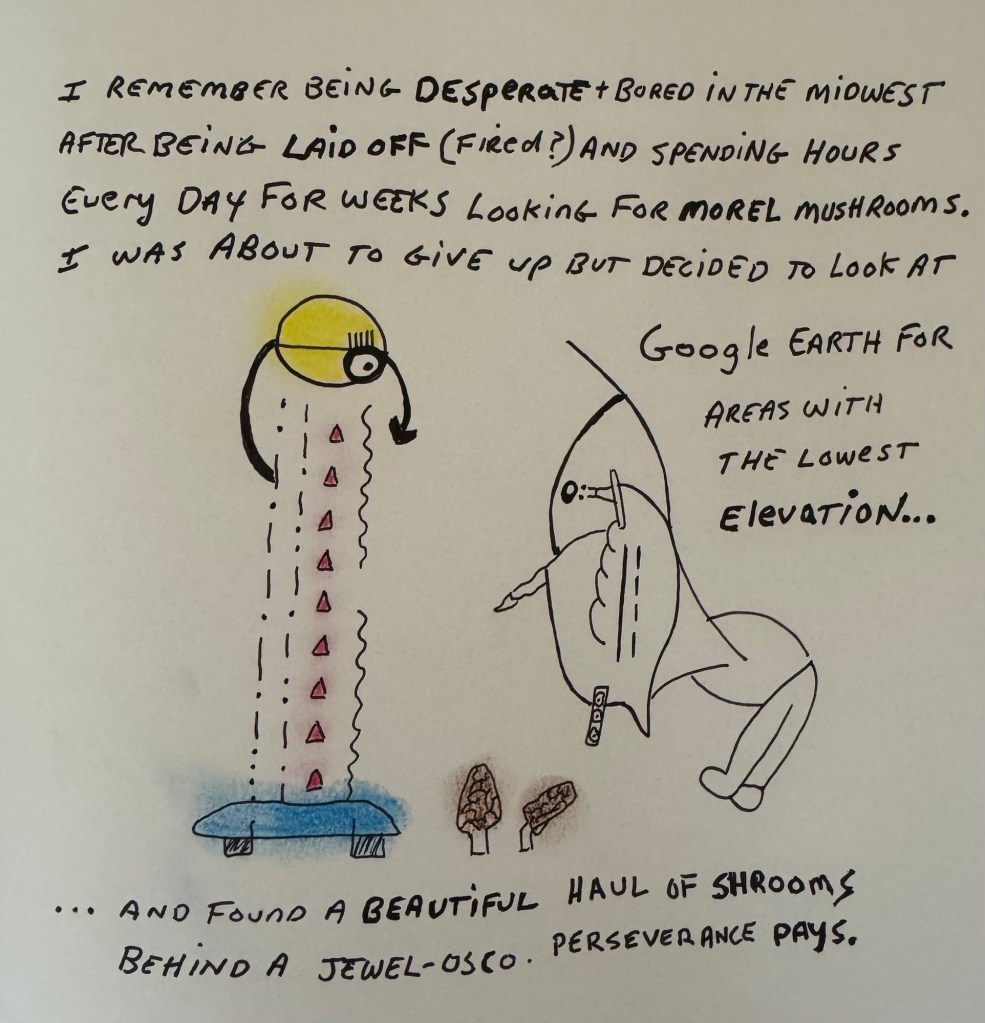 I REMEMBER BEING DESPERATE + BORED IN THE MIDWEST
AFTER BEING LAID OFF (FIRED?) AND SPENDING HOURS
EVERY DAY FOR WEEKS LOOKING FOR MOREL MUSHROOMS.
I WAS ABOUT TO GIVE UP BUT DECIDED TO LOOK AT
GOOGLE EARTH FOR
AREAS WITH
THE LOWEST
ELEVATION...
... AND FOUND A BEAUTIFUL HAUL OF SHROOMS
BEHIND A JEWEL-OSCO. PERSEVERANCE PAYS.